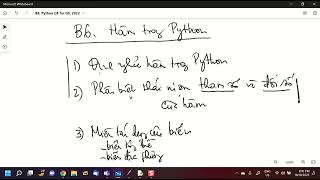 Microsoft Whiteboard
B6. Python CB for GV, 2022
B6. Hàm trong Python
1) Định nghĩa hàm trong Python
2) Phân biệt khái niệm tham số và đối số
của hàm
3) Miền tác dụng của biến
- biến toàn cục
- biến địa phương